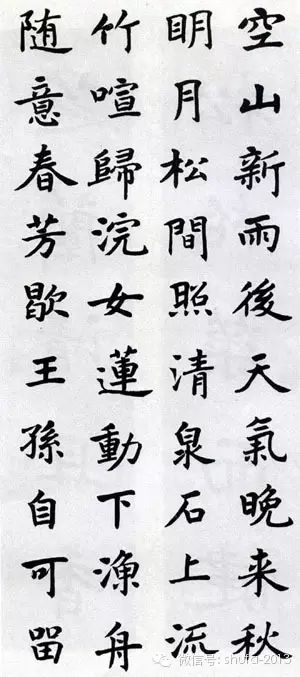 空山新雨後天氣晚来秋
明月松間照清泉石上流
竹喧歸浣女蓮動下漁舟
随意春芳歇王孫自可留
微信号: shufa-2013